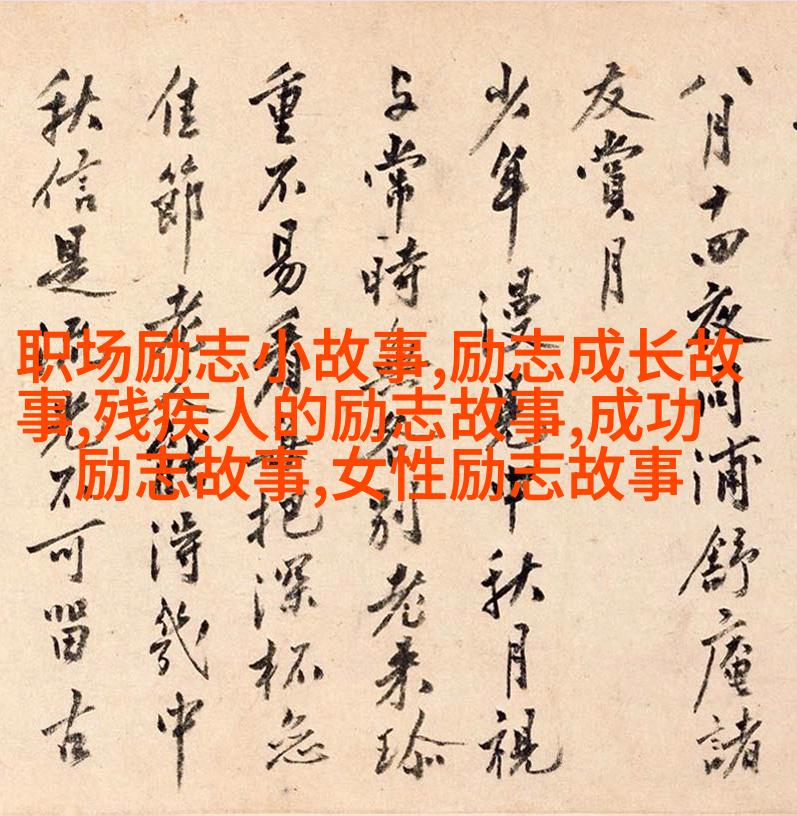 职场励志小故事,励志成长故
事,残疾人的励志故事,成功
励志故事,女性励志故事
八月十四夜同浦舒庵諸
友賞月
少年漫遇中秋月視
与常時無別老来珎
重不易看把深杯急
佳節老得幾中
秋信是流光不可留古